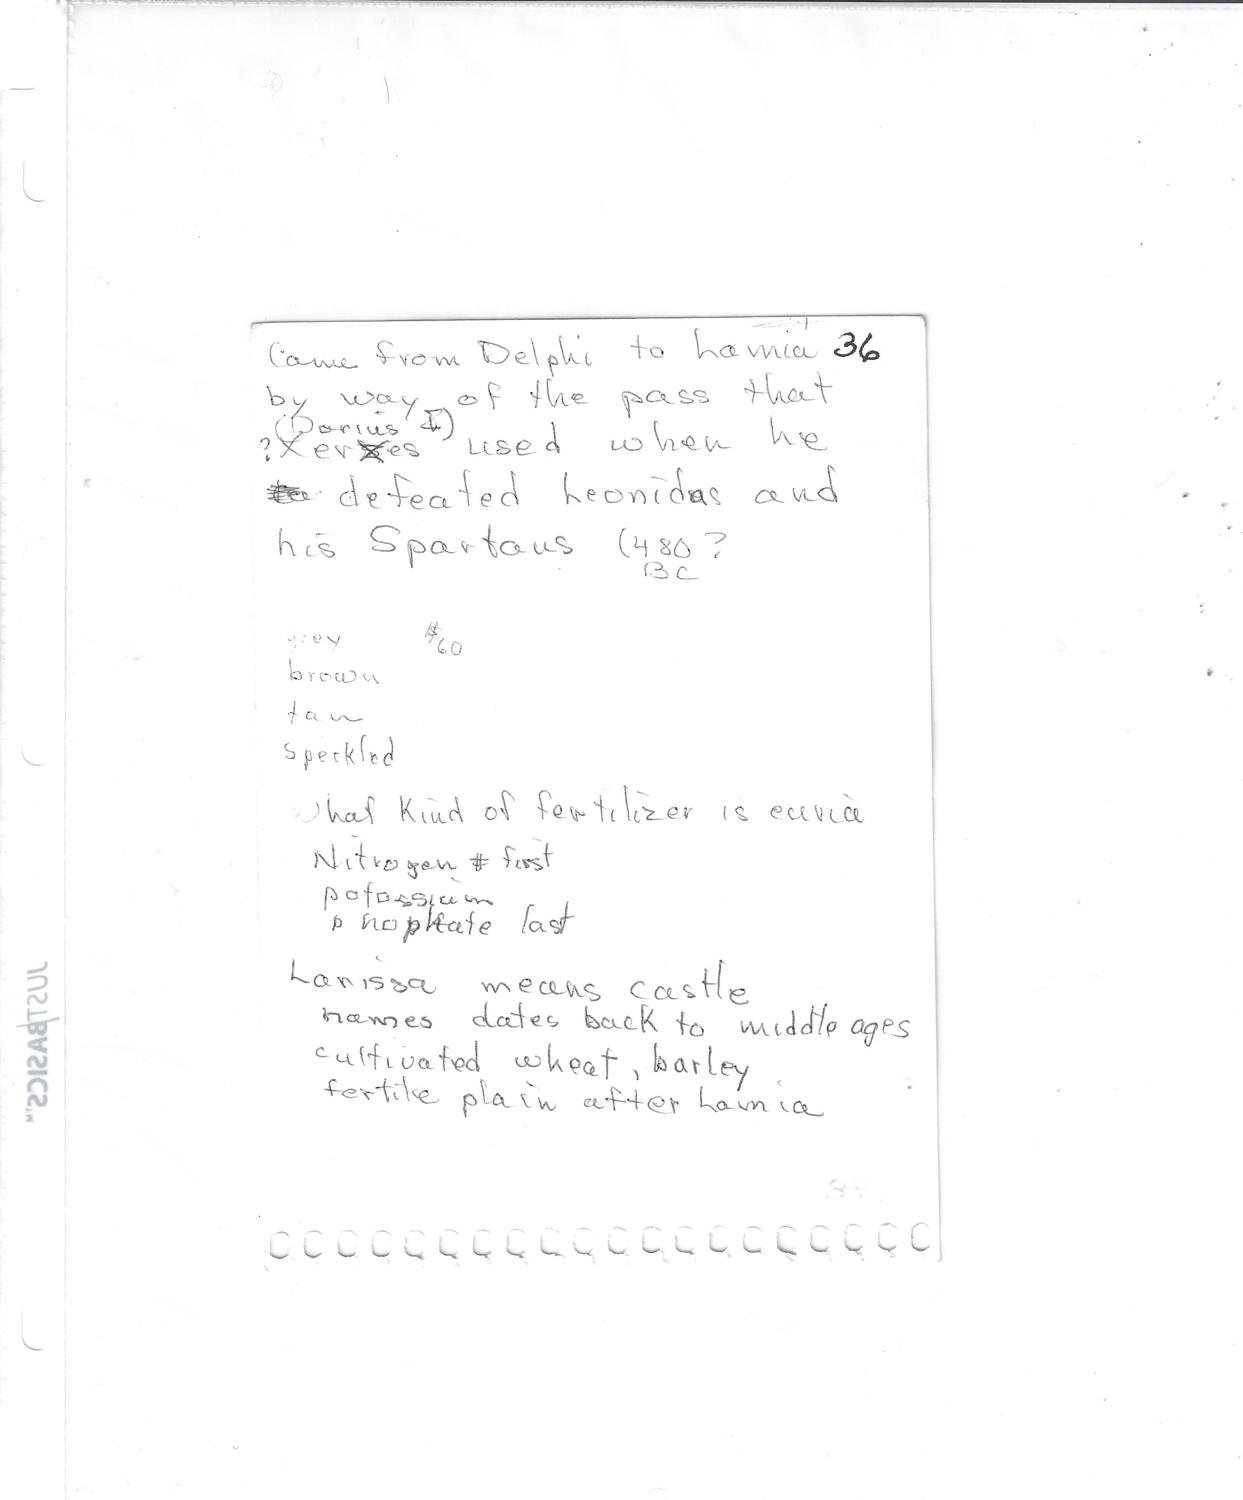 Came from Delphi to Lamia 36
by way of the pass that
(Darius I)
? Xerxes used when he
defeated Leonidas and
his Spartans (480 ?
BC
grey $60
brown
tan
speckled
What kind of fertilizer is
Nitrogen # first
potassium
phophate last
Larissa means castle
names dates back to middle ages
cultivated wheat, barley
fertile plain after Lamia
JUSTBASICS™